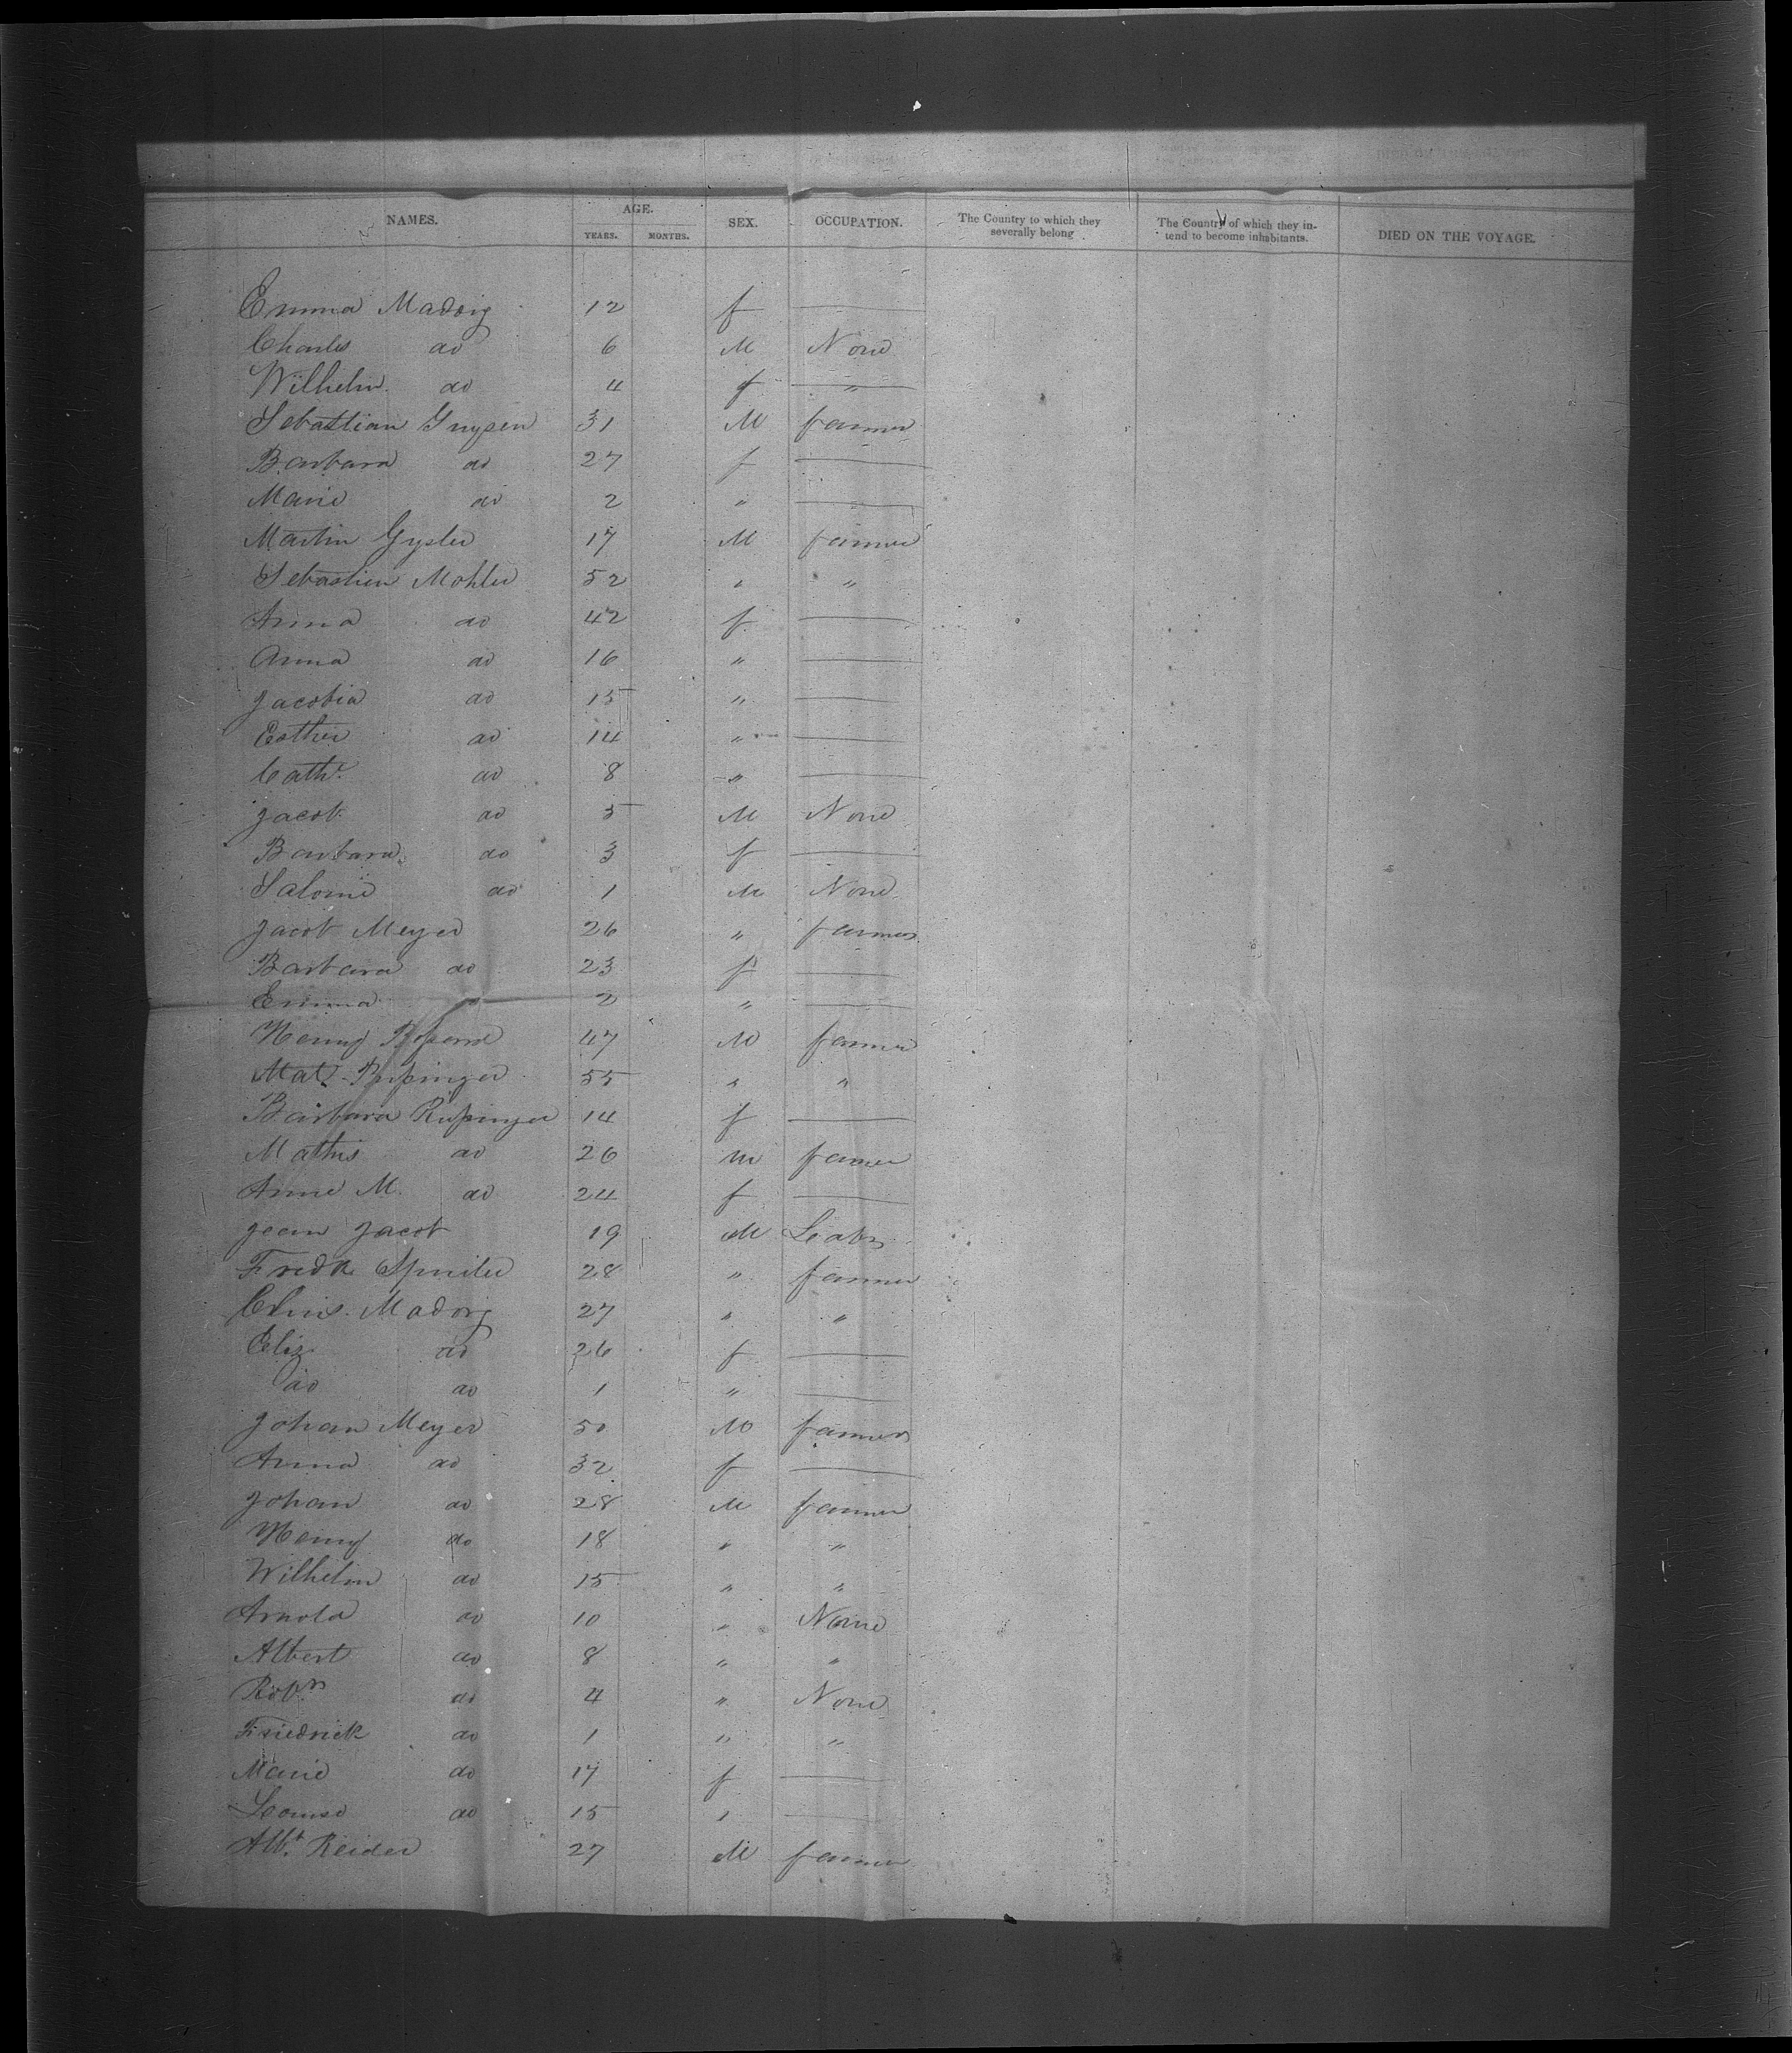 NAMES. AGE. SEX. OCCUPATION. The Country to which they severally belong The Country of which they intend to become inhabitants. DIED ON THE VOYAGE.
YEARS. MONTHS.
Emma Madorig 12 f —
Charles do 6 M None
Wilhelm do 4 f — "
Sebastian 31 M farmer
Barbara do 27 f —
Marie do 2 " —
Martin Gysler 17 M farmer
Sebastien Mohler 52 " "
Anna do 42 f —
Anna do 16 " —
Jacobia do 15 " —
Esther do 14 " —
Cath. do 8 " —
Jacob do 5 M None
Barbara do 3 f —
Salomé do 1 M None
Jacob Meyer 26 " farmer
Barbara do 23 f —
Emma 2 " —
Henry 47 M farmer
Mat. 55 " "
Barbara Rupinger 14 f —
Mathis do 26 m farmer
Anne M. do 24 f —
Jean Jacob 19 M
Fredk 28 " farmer
Chris. Madorig 27 " "
Eliz do 26 f —
do do 1 " —
Johan Meyer 50 M farmer
Anna do 32 f —
Johan do 28 M farmer
Henry do 18 " "
Wilhelm do 15 " "
Arnold do 10 " None
Albert do 8 " "
Rob. do 4 " None
Friedrick do 1 " "
Marie do 17 f —
Louise do 15 " —
Albt. Reider 27 M farmer